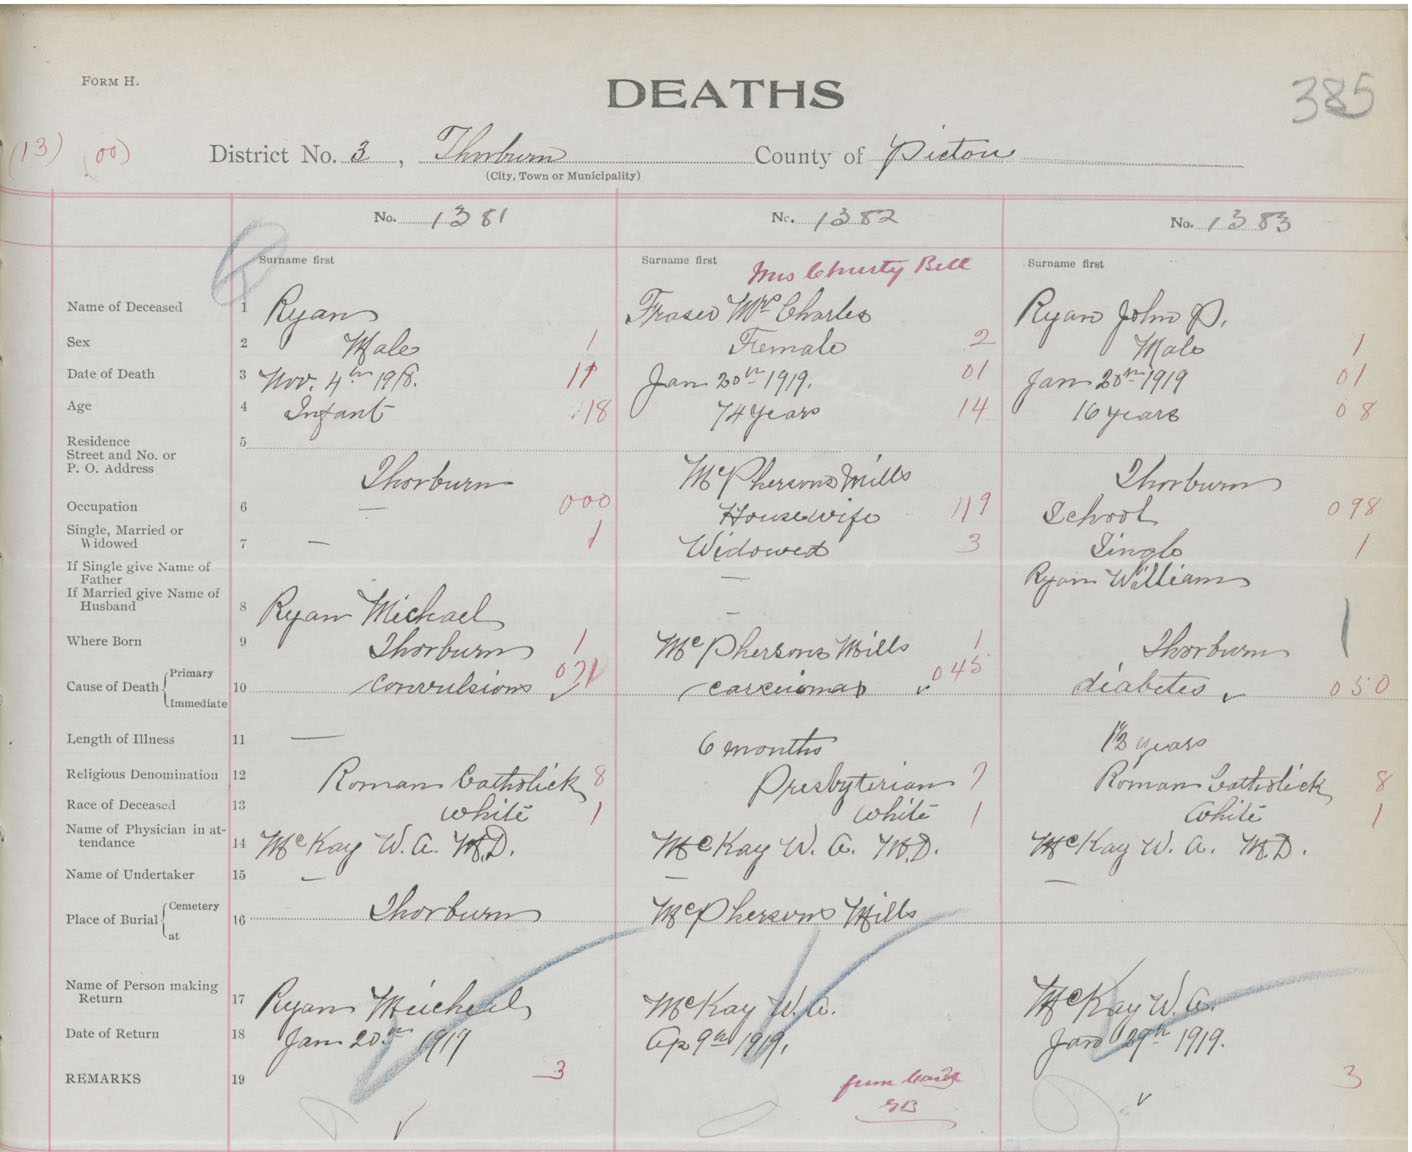 FORM H.
DEATHS
385
(13) (00) District No. 3, Thorburn County of Pictou
(City, Town or Municipality)
No. 1381 No. 1382 No. 1383
Surname first Surname first Surname first
Mrs Christy Bell
Name of Deceased 1 Ryan Fraser Mrs Charles Ryan John P.
Sex 2 Male 1 Female 2 Male 1
Date of Death 3 Nov. 4th 1918. 11 Jan 20th 1919. 01 Jan 20th 1919 01
Age 4 Infant 18 74 years 14 16 years 08
Residence 5
Street and No. or
P. O. Address Thorburn McPhersons Mills Thorburn
Occupation 6 — 000 Housewife 119 School 098
Single, Married or
Widowed 7 — 1 Widowed 3 Single 1
If Single give Name of
Father — Ryan William
If Married give Name of
Husband 8 Ryan Michael —
Where Born 9 Thorburn 1 McPhersons Mills 1 Thorburn 1
Cause of Death Primary 10 convulsions 071 carcinoma 045 diabetes 050
Immediate
Length of Illness 11 — 6 months years
Religious Denomination 12 Roman Catholick 8 Presbyterian 7 Roman Catholick 8
Race of Deceased 13 white 1 white 1 white 1
Name of Physician in at-
tendance 14 McKay W. A. M.D. McKay W. A. M.D. McKay W. A. M.D.
Name of Undertaker 15 — — —
Place of Burial Cemetery 16 Thorburn McPhersons Mills
at
Name of Person making
Return 17 Ryan Micheal McKay W. A. McKay W. A.
Date of Return 18 Jan 20th 1919 Ap 9th 1919. Jan 29th 1919.
REMARKS 19 3 from 3